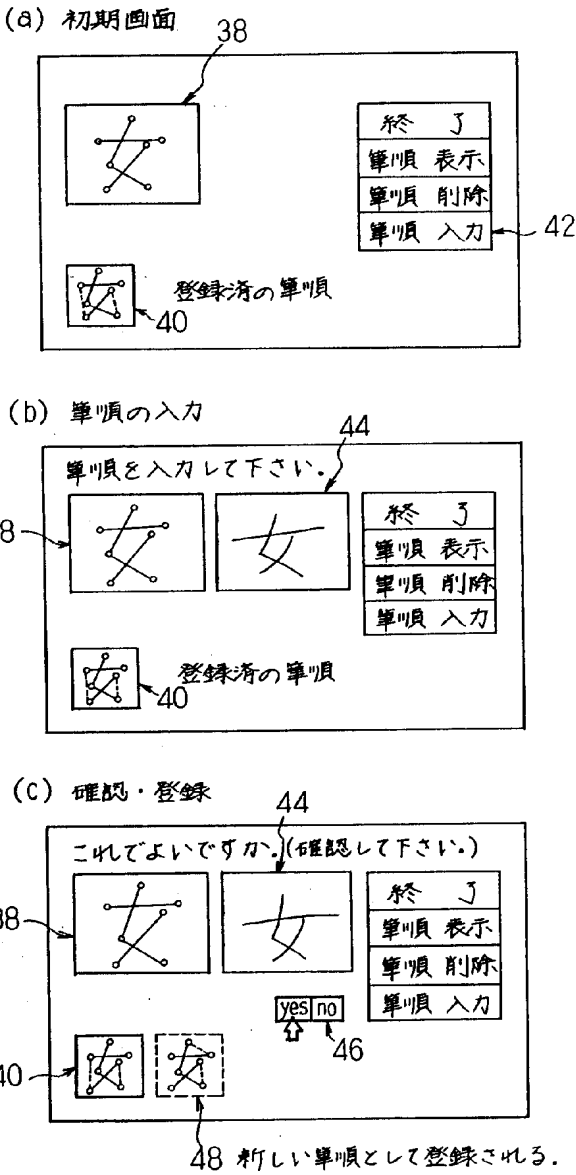 (a) 初期画面
38
女
終 了
筆順 表示
筆順 削除
筆順 入力
42
女
40
登録済の筆順
(b) 筆順の入力
44
筆順を入力して下さい.
8
女
女
終 了
筆順 表示
筆順 削除
筆順 入力
女
40
登録済の筆順
(c) 確認・登録
44
これでよいですか.(確認して下さい.)
38
女
女
終 了
筆順 表示
筆順 削除
筆順 入力
yes no
46
40
女
女
48 新しい筆順として登録される.